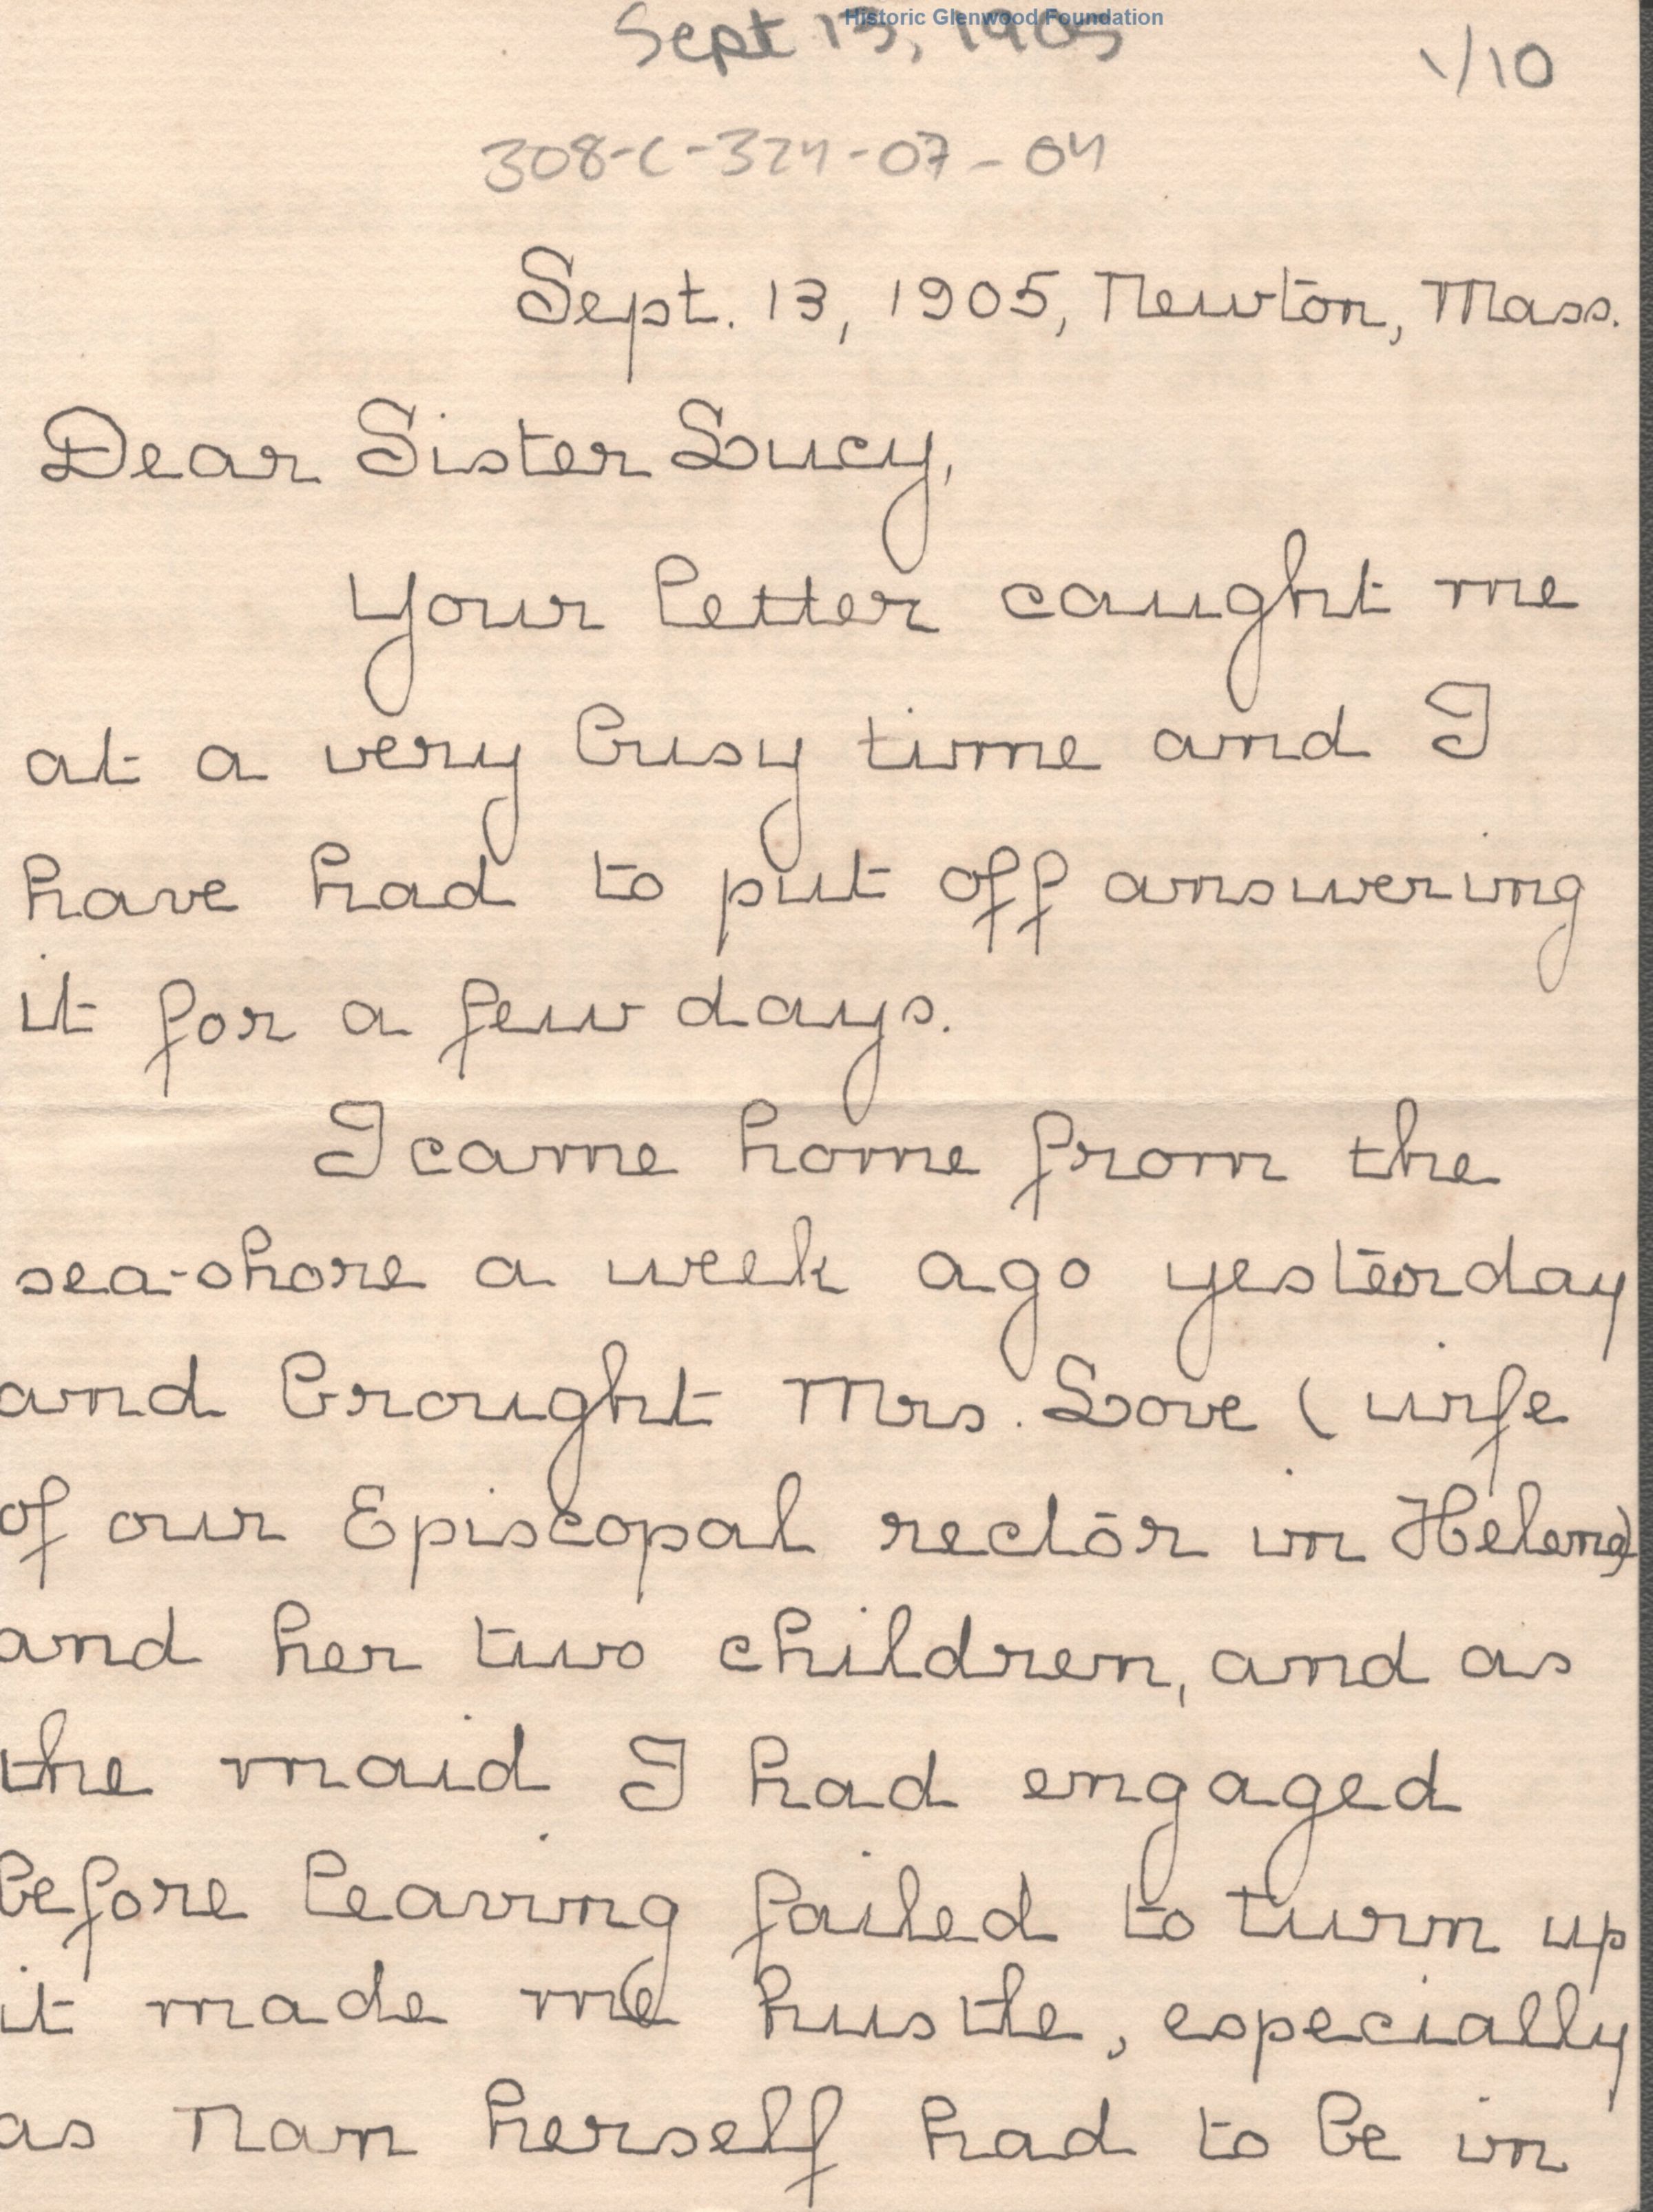 Historic Glenwood Foundation
Sept 13, 1905
1/10
308-C-324-07-04
Sept. 13, 1905, Newton, Mass.
Dear Sister Lucy,
Your letter caught me
at a very busy time and I
have had to put off answering
it for a few days.
I came home from the
sea-shore a week ago yesterday
and brought Mrs. Love (wife
of our Episcopal rector in Helena)
and her two children, and as
the maid I had engaged
before leaving failed to turn up
it made me hustle, especially
as Nan herself had to be in